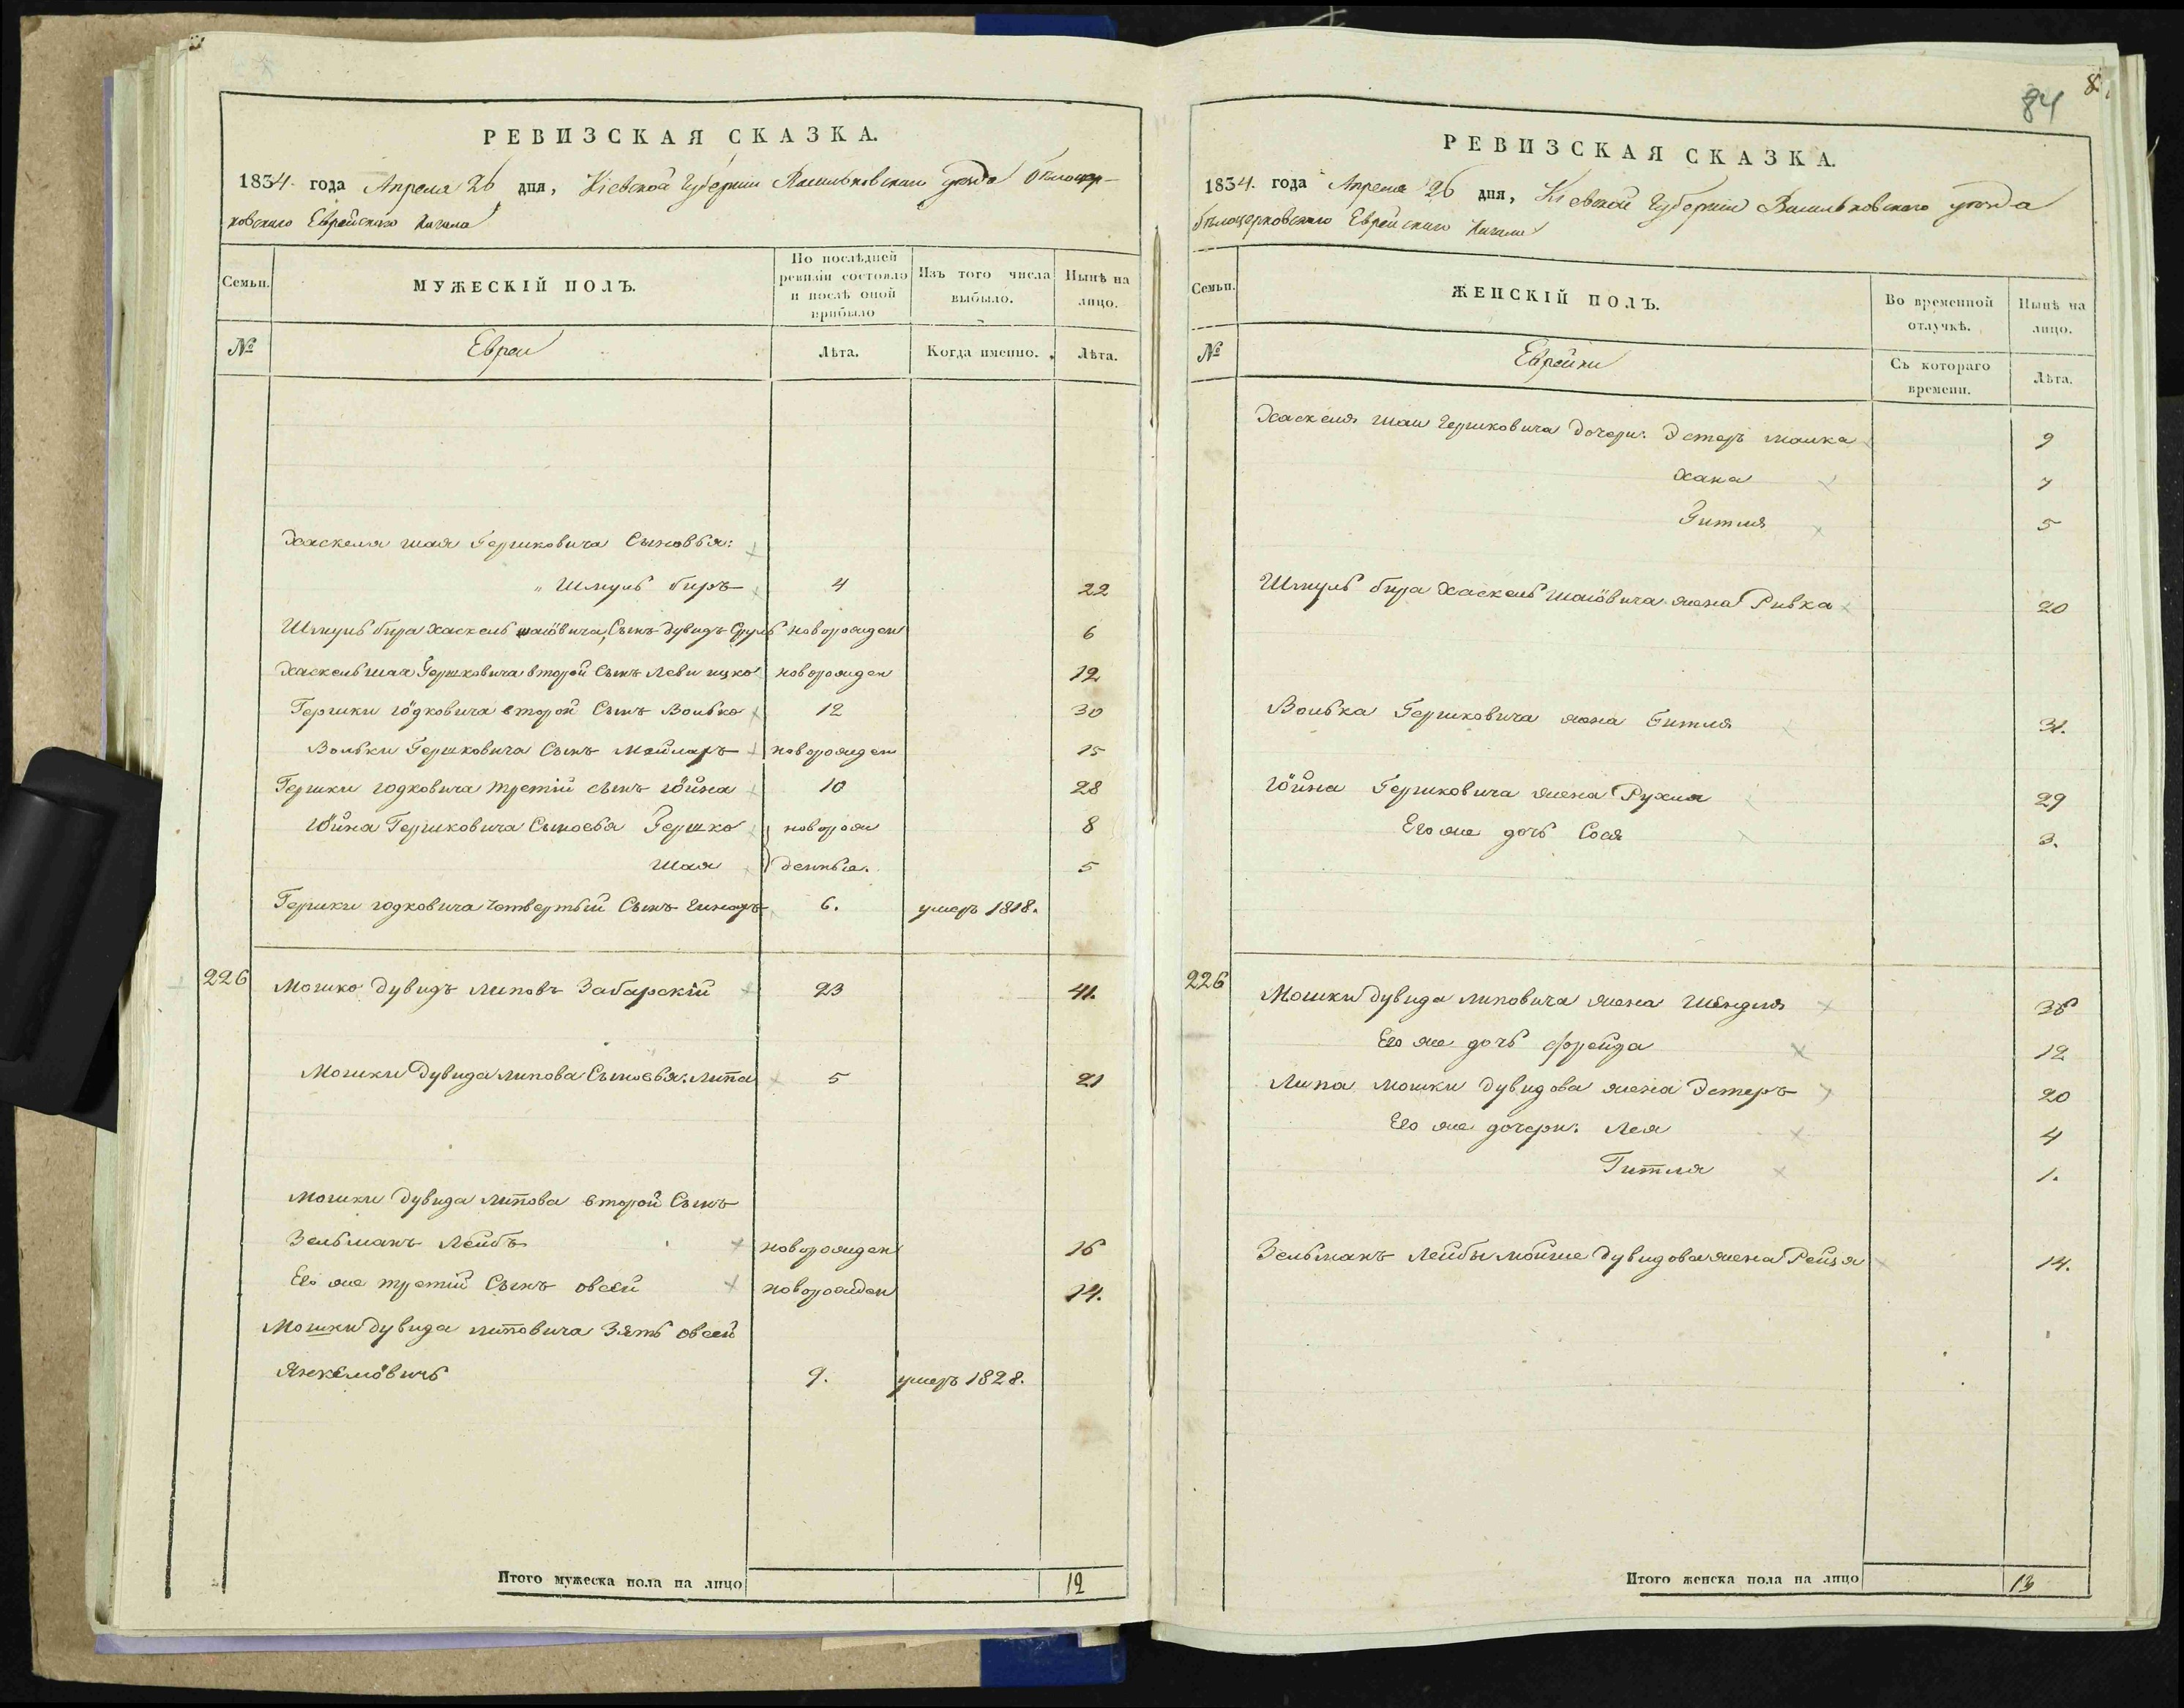 84
РЕВИЗСКАЯ СКАЗКА.
1834. года Апреля 26 дня, Кіевской Губерніи Васильковскаго уезда Белоцер-
ковскаго Еврейскаго Кагала
Семьи.
МУЖЕСКІЙ ПОЛЪ.
По послѣдней ревизіи состояло и послѣ оной прибыло
Изъ того числа выбыло.
Нынѣ на лицо.
№
Евреи
Лѣта.
Когда именно.
Лѣта.
Хаскеля шая Гершковича Сыновья:
Шмуль биръ 4 22
Шмуль бира Хаскель шаіовича Сынъ дувидъ Сруль новорожден 6
Хаскель шая Гершковича второй Сынъ Леви ицко новорожден 12
Гершки іодковича второй Сынъ Волько 12 30
Вольки Гершковича Сынъ Мейлахъ новорожден 15
Гершки іодковича третій сынъ іойна 10 28
іойна Гершковича Сыновья Гершко новорож 8
шая денные. 5
Гершки іодковича четвертый Сынъ 6. умеръ 1818.
226 Мошко дувидъ липовъ Забарскій 23 41.
Мошки дувида липова Сыновья: липа 5 21
Мошки дувида липова второй Сынъ
Зельманъ Лейбъ новорожден 16
Его же третій Сынъ овсей новорожден 14.
Мошки дувида липовича Зять овсей
Янкелювичъ 9. умеръ 1828.
Итого мужеска пола на лицо 12
РЕВИЗСКАЯ СКАЗКА.
1834. года Апреля 26 дня, Кіевской Губерніи Васильковскаго уезда
белоцерковскаго Еврейскаго Кагала
Семьи.
ЖЕНСКІЙ ПОЛЪ.
Во временной отлучкѣ.
Нынѣ на лицо.
№
Еврейки
Съ котораго времени.
Лѣта.
Хаскеля шаи Гершковича дочери: Эстеръ малка 9
Хана 7
Гитля 5
Шмуль бира Хаскель шаіовича жена Ривка 20
Волька Гершковича жена Гитля 31.
іойна Гершковича жена Рухля 29
Его же дочь Сося 3.
226 Мошки дувида липовича жена Шендля 38
Его же дочь фрейда 12
Липа мошки дувидова жена Эстеръ 20
Его же дочери: Лея 4
Гитля 1.
Зельманъ Лейбы мойше дувидова жена Рейзя 14.
Итого женска пола на лицо 13